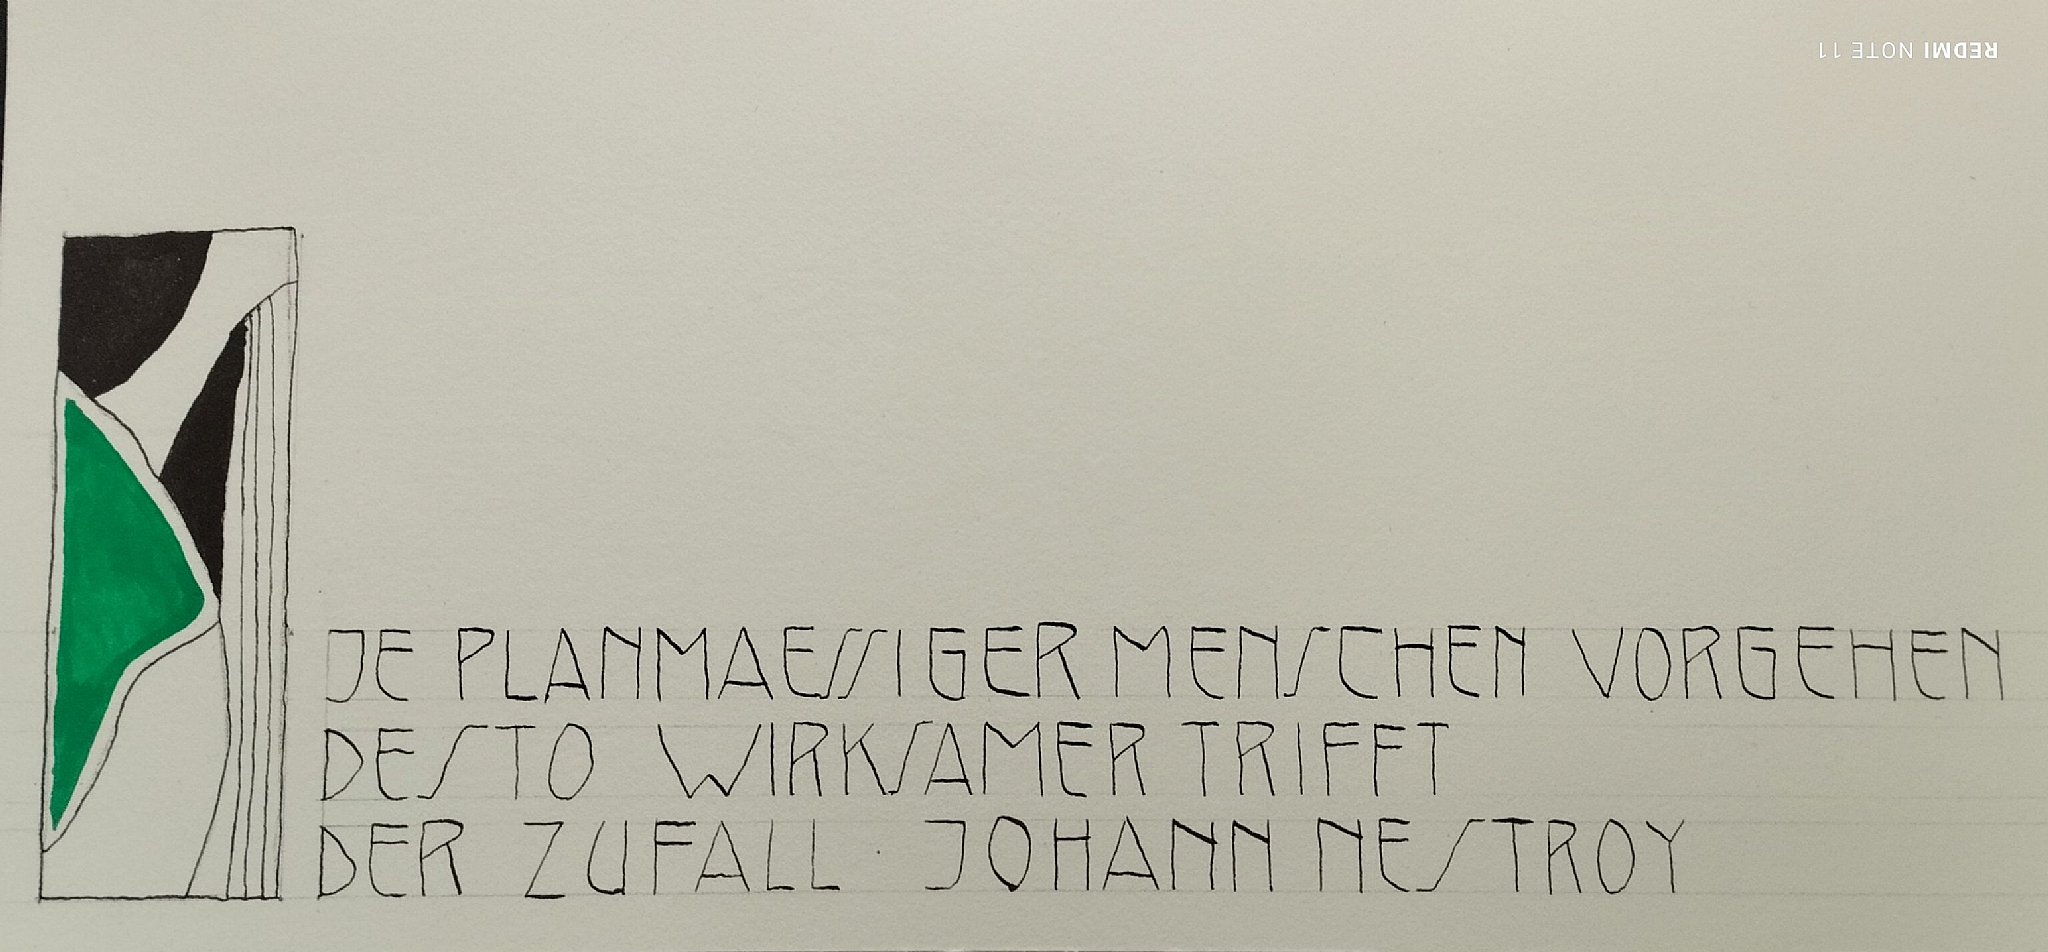 REDMI NOTE 11
JE PLANMAESSIGER MENSCHEN VORGEHEN
DESTO WIRKSAMER TRIFFT
DER ZUFALL · JOHANN NESTROY